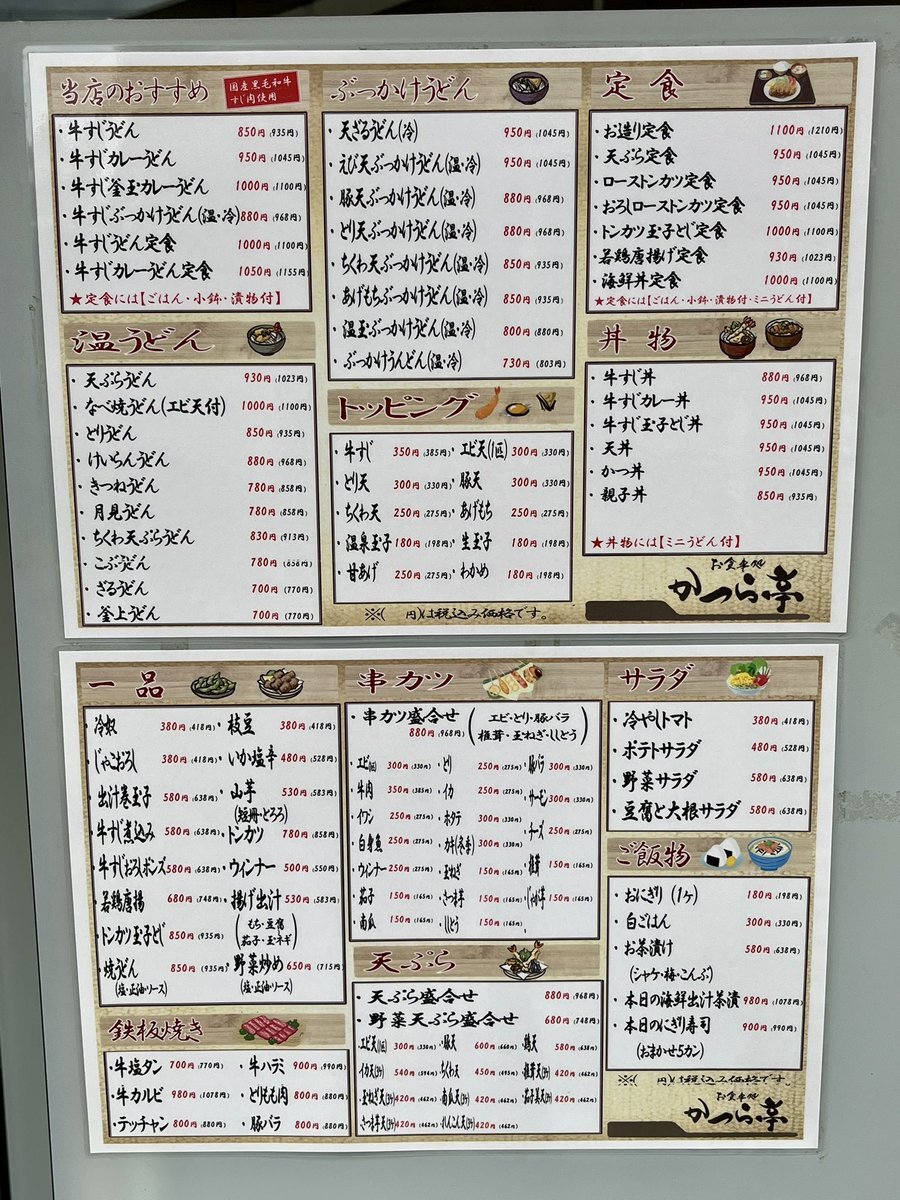 当店のおすすめ
国産黒毛和牛
すじ肉使用
・牛すじうどん 850円(935円)
・牛すじカレーうどん 950円(1045円)
・牛すじ釜玉カレーうどん 1000円(1100円)
・牛すじぶっかけうどん(温・冷) 880円(968円)
・牛すじうどん定食 1000円(1100円)
・牛すじカレーうどん定食 1050円(1155円)
★定食には【ごはん・小鉢・漬物付】
温うどん
・天ぷらうどん 930円(1023円)
・なべ焼うどん(エビ天付) 1000円(1100円)
・とりうどん 850円(935円)
・けいらんうどん 880円(968円)
・きつねうどん 780円(858円)
・月見うどん 780円(858円)
・ちくわ天ぷらうどん 830円(913円)
・こぶうどん 780円(858円)
・ざるうどん 700円(770円)
・釜上うどん 700円(770円)
ぶっかけうどん
・天ざるうどん(冷) 950円(1045円)
・えび天ぶっかけうどん(温・冷) 950円(1045円)
・豚天ぶっかけうどん(温・冷) 880円(968円)
・とり天ぶっかけうどん(温・冷) 880円(968円)
・ちくわ天ぶっかけうどん(温・冷) 850円(935円)
・あげもちぶっかけうどん(温・冷) 850円(935円)
・温玉ぶっかけうどん(温・冷) 800円(880円)
・ぶっかけうんどん(温・冷) 730円(803円)
トッピング
・牛すじ 350円(385円)・エビ天(1匹) 300円(330円)
・とり天 300円(330円)・豚天 300円(330円)
・ちくわ天 250円(275円)・あげもち 250円(275円)
・温泉玉子 180円(198円)・生玉子 180円(198円)
・甘あげ 250円(275円)・わかめ 180円(198円)
※( 円)は税込み価格です。
定食
・お造り定食 1100円(1210円)
・天ぷら定食 950円(1045円)
・ローストンカツ定食 950円(1045円)
・おろしローストンカツ定食 950円(1045円)
・トンカツ玉子とじ定食 1000円(1100円)
・若鶏唐揚げ定食 930円(1023円)
・海鮮丼定食 1000円(1100円)
★定食には【ごはん・小鉢・漬物付・ミニうどん付】
丼物
・牛すじ丼 880円(968円)
・牛すじカレー丼 950円(1045円)
・牛すじ玉子とじ丼 950円(1045円)
・天丼 950円(1045円)
・かつ丼 950円(1045円)
・親子丼 850円(935円)
★丼物には【ミニうどん付】
お食事処
かつら亭
一品
・冷奴 380円(418円)・枝豆 380円(418円)
・じゃこおろし 380円(418円)・いか塩辛 480円(528円)
・出汁巻玉子 580円(638円)・山芋 530円(583円)
(短冊・とろろ)
・牛すじ煮込み 580円(638円)・トンカツ 780円(858円)
・牛すじおろしポンズ 580円(638円)・ウィンナー 500円(550円)
・若鶏唐揚 680円(748円)・揚げ出汁 530円(583円)
(もち・豆腐
茄子・玉ネギ)
・トンカツ玉子とじ 850円(935円)
・焼うどん 850円(935円)・野菜炒め 650円(715円)
(塩・正油・ソース) (塩・正油・ソース)
鉄板焼き
・牛塩タン 700円(770円)・牛ハラミ 900円(990円)
・牛カルビ 980円(1078円)・とりもも肉 800円(880円)
・テッチャン 800円(880円)・豚バラ 800円(880円)
串カツ
・串カツ盛合せ (エビ・とり・豚バラ
880円(968円) 椎茸・玉ねぎ・ししとう)
・エビ(1匹) 300円(330円)・とり 250円(275円)・豚バラ 300円(330円)
・牛肉 350円(385円)・イカ 250円(275円)・サーモン 300円(330円)
・イワシ 250円(275円)・ホタテ 300円(330円)・チーズ 250円(275円)
・白身魚 250円(275円)・カキ(冬季) 300円(330円)
・ウィンナー 250円(275円)・玉ねぎ 150円(165円)・椎茸 150円(165円)
・茄子 150円(165円)・さつま芋 150円(165円)・じゃが芋 150円(165円)
・南瓜 150円(165円)・ししとう 150円(165円)
天ぷら
・天ぷら盛合せ 880円(968円)
・野菜天ぷら盛合せ 680円(748円)
・エビ天(1匹) 300円(330円)・豚天 600円(660円)・鶏天 580円(638円)
・イカ天(3ケ) 540円(594円)・ちくわ天 450円(495円)・椎茸天(3ケ) 420円(462円)
・玉ねぎ天(3ケ) 420円(462円)・南瓜天(3ケ) 420円(462円)・茄子天(3ケ) 420円(462円)
・さつま芋天(3ケ) 420円(462円)・れんこん天(3ケ) 420円(462円)
サラダ
・冷やしトマト 380円(418円)
・ポテトサラダ 480円(528円)
・野菜サラダ 580円(638円)
・豆腐と大根サラダ 580円(638円)
ご飯物
・おにぎり(1ケ) 180円(198円)
・白ごはん 300円(330円)
・お茶漬け 580円(638円)
(シャケ・梅・こんぶ)
・本日の海鮮出汁茶漬 980円(1078円)
・本日のにぎり寿司 900円(990円)
(おまかせ5カン)
※( 円)は税込み価格です。
お食事処
かつら亭